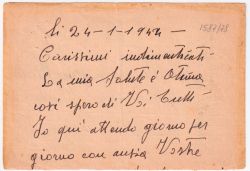 li 24-1-1944 -
1587/78
Carissimi indimenticati
La mia Salute è Otima
così spero di Voi tutti
Io qui attendo giorno per
giorno con ansia Vostre